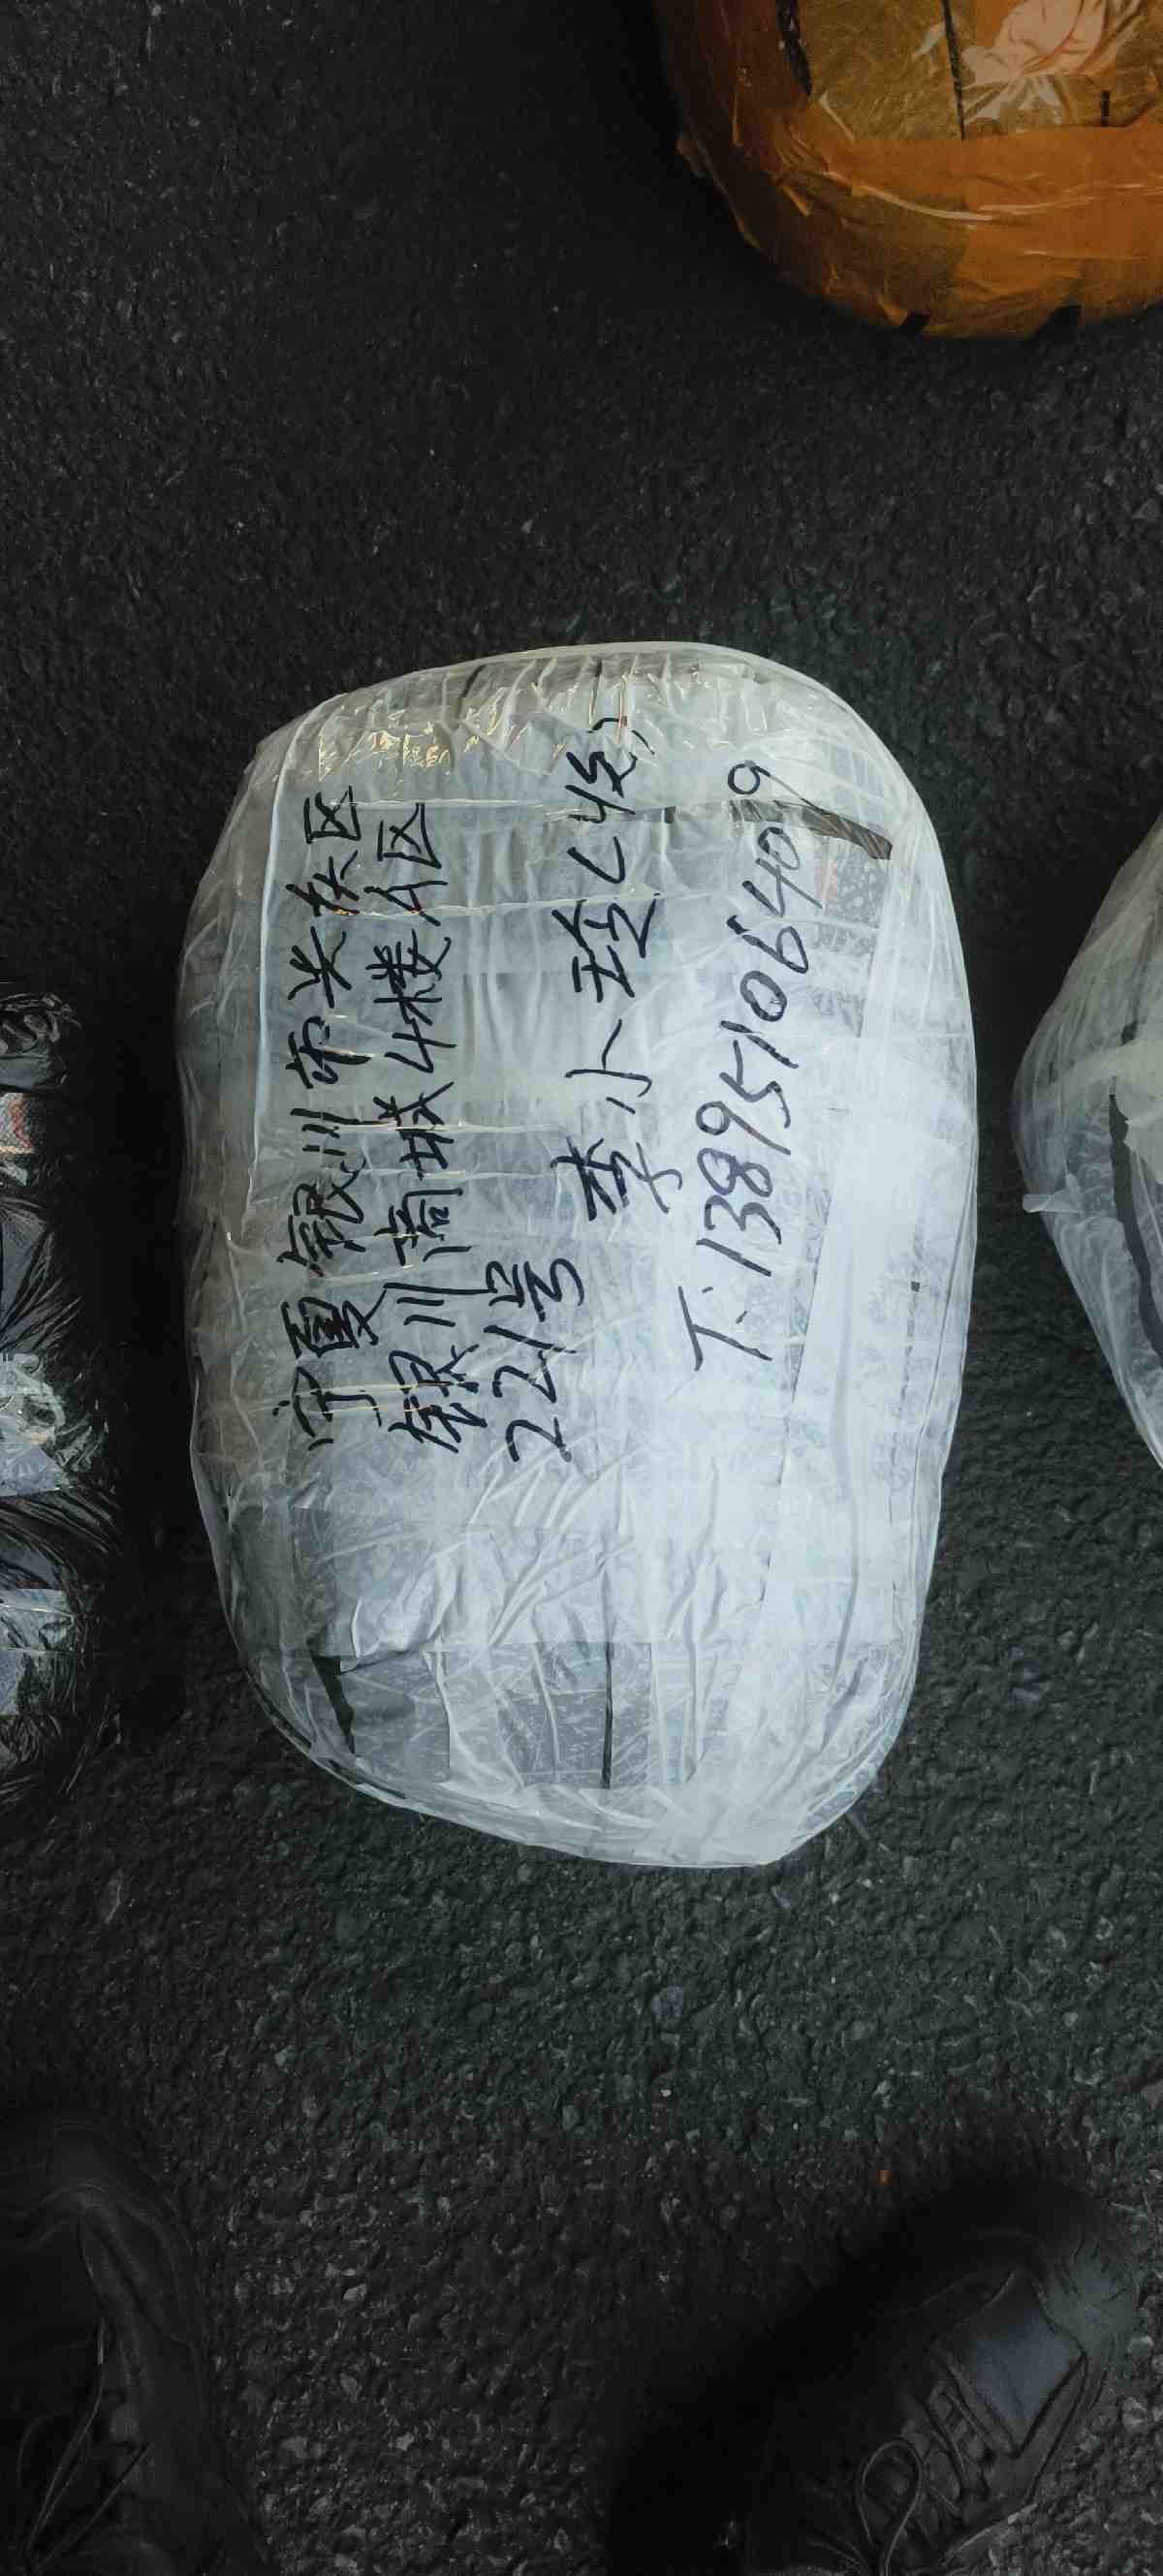 宁夏银川市兴庆区
银川商城4楼A区
221号
李小玲(4包)
T:13895106409